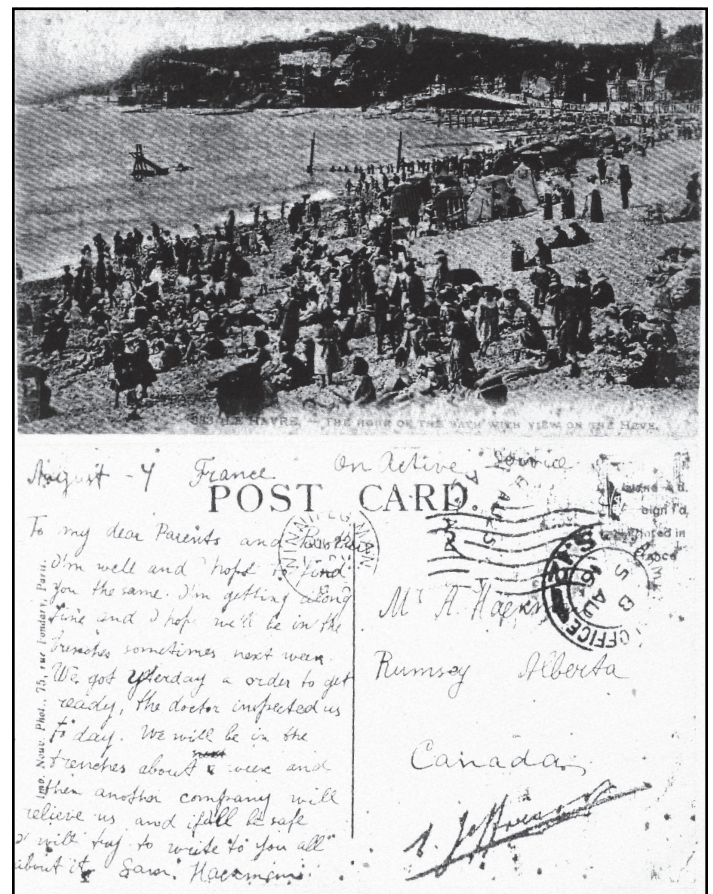 883 LE HAVRE. — THE HOUR OF THE BATH WITH VIEW ON THE HEVE.
August - 4 France On Active Service
POST CARD
To my dear Parents and
I'm well and hope to find
you the same. I'm getting along
fine and I hope we'll be in the
trenches sometimes next week.
We got yterday a order to get
ready, the doctor inspected us
to day. We will be in the
trenches about a week and
then another company will
relieve us and if all be safe
I will try to write to you all
about it. Sam. Hackman.
Imp. Nouv. Phot., 75, rue Fondary, Paris.
Mr A.
Rumsey Alberta
Canada
WINNIPEG MAN
AU
OFFICE
AU